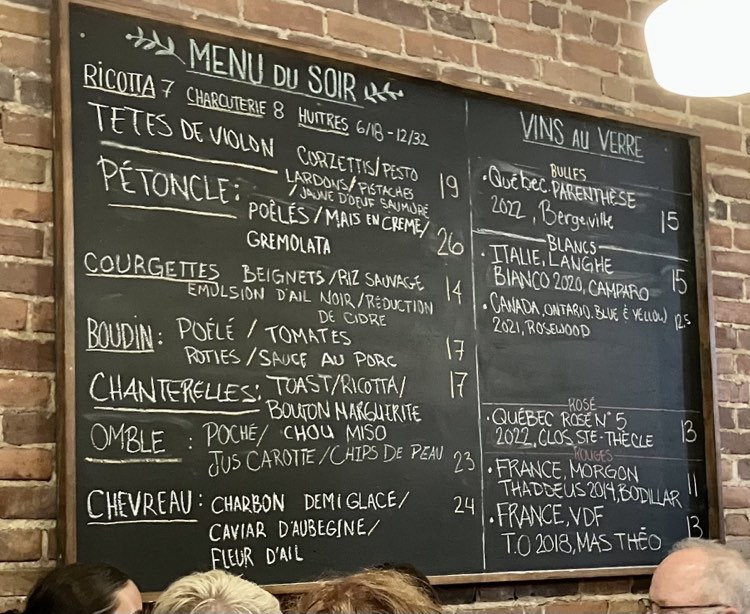 MENU DU SOIR
RICOTTA 7 CHARCUTERIE 8 HUITRES 6/18 - 12/32
TETES DE VIOLON CORZETTIS/PESTO
LARDONS/PISTACHES 19
/JAUNE D'OEUF SAUMURÉ
PÉTONCLE: POÊLÉS/MAIS EN CREME/ 26
GREMOLATA
COURGETTES BEIGNETS/RIZ SAUVAGE 14
EMULSION D'AIL NOIR/RÉDUCTION
DE CIDRE
BOUDIN: POÊLÉ / TOMATES 17
ROTIES/SAUCE AU PORC
CHANTERELLES: TOAST/RICOTTA/ 17
BOUTON MARGUERITE
OMBLE : POCHÉ/ CHOU MISO
JUS CAROTTE/CHIPS DE PEAU 23
CHEVREAU: CHARBON DEMI GLACE/ 24
CAVIAR D'AUBEGINE/
FLEUR D'AIL
VINS AU VERRE
BULLES
• QUÉBEC, PARENTHÈSE
2022, Bergeville 15
BLANCS
• ITALIE, LANGHE
BIANCO 2020, CAMPARO 15
• CANADA, ONTARIO, BLUE & YELLOW 12.5
2021, ROSEWOOD
ROSÉ
• QUÉBEC ROSÉ N° 5
2022, CLOS STE-THÈCLE 13
ROUGES
• FRANCE, MORGON
THADDEUS 2014, BODILLAR 11
• FRANCE, VDF
T.O 2018, MAS THÉO 13